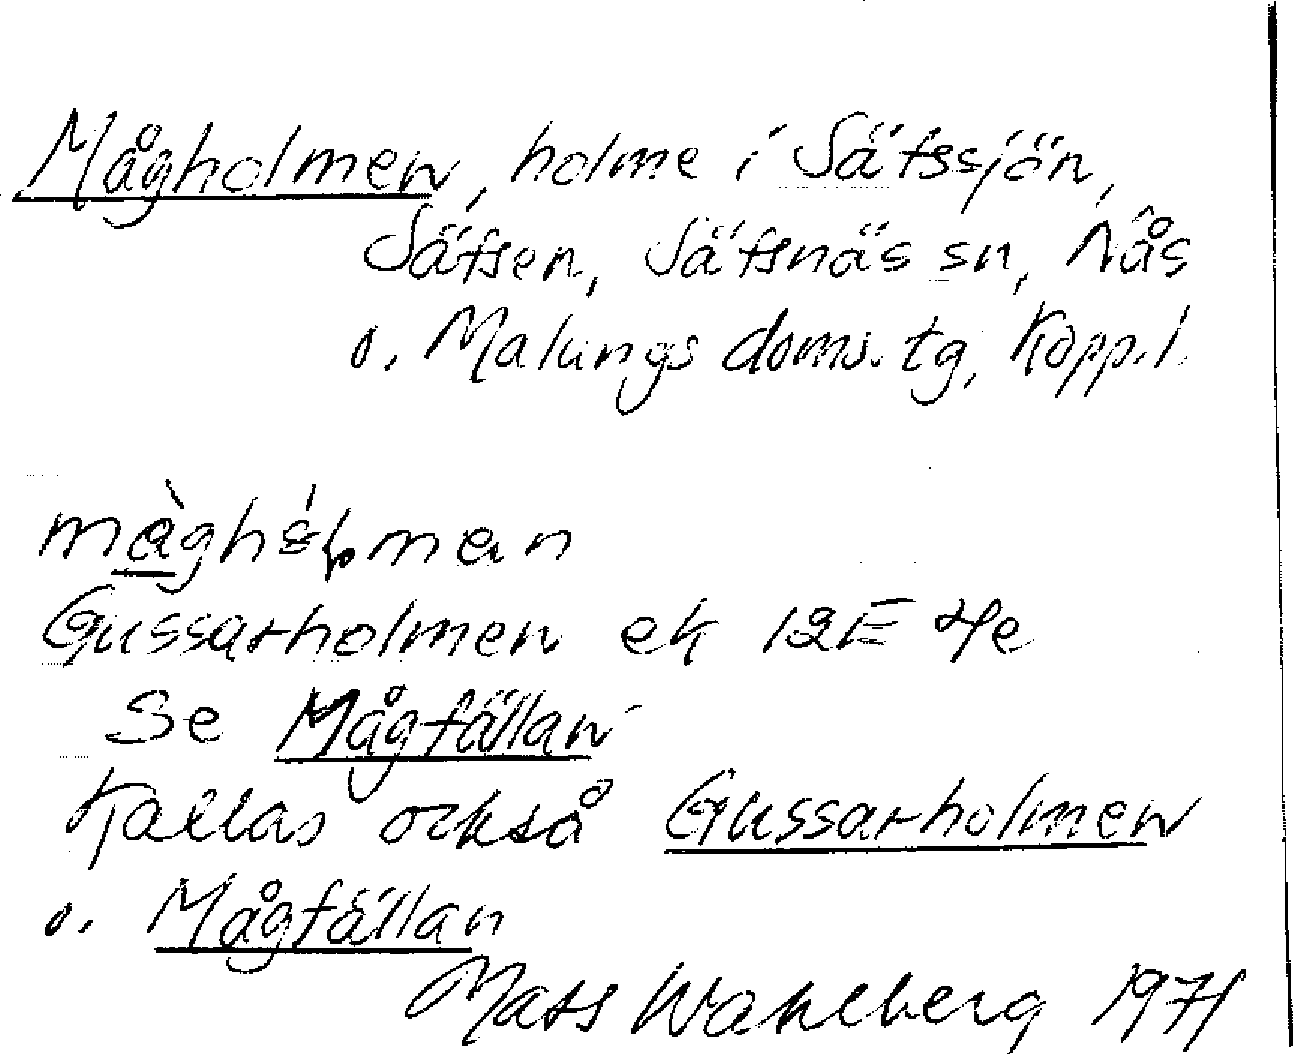 Mågholmen, holme i Säfssjön,
Säfsen, Säfsnäs sn, Nås
o. Malungs doms. tg, Kopp.l.
Gussarholmen ek 12E 4e
Se Mågfällan
Kallas också Gussarholmen
o. Mågfällan
Mats Wahlberg 1971